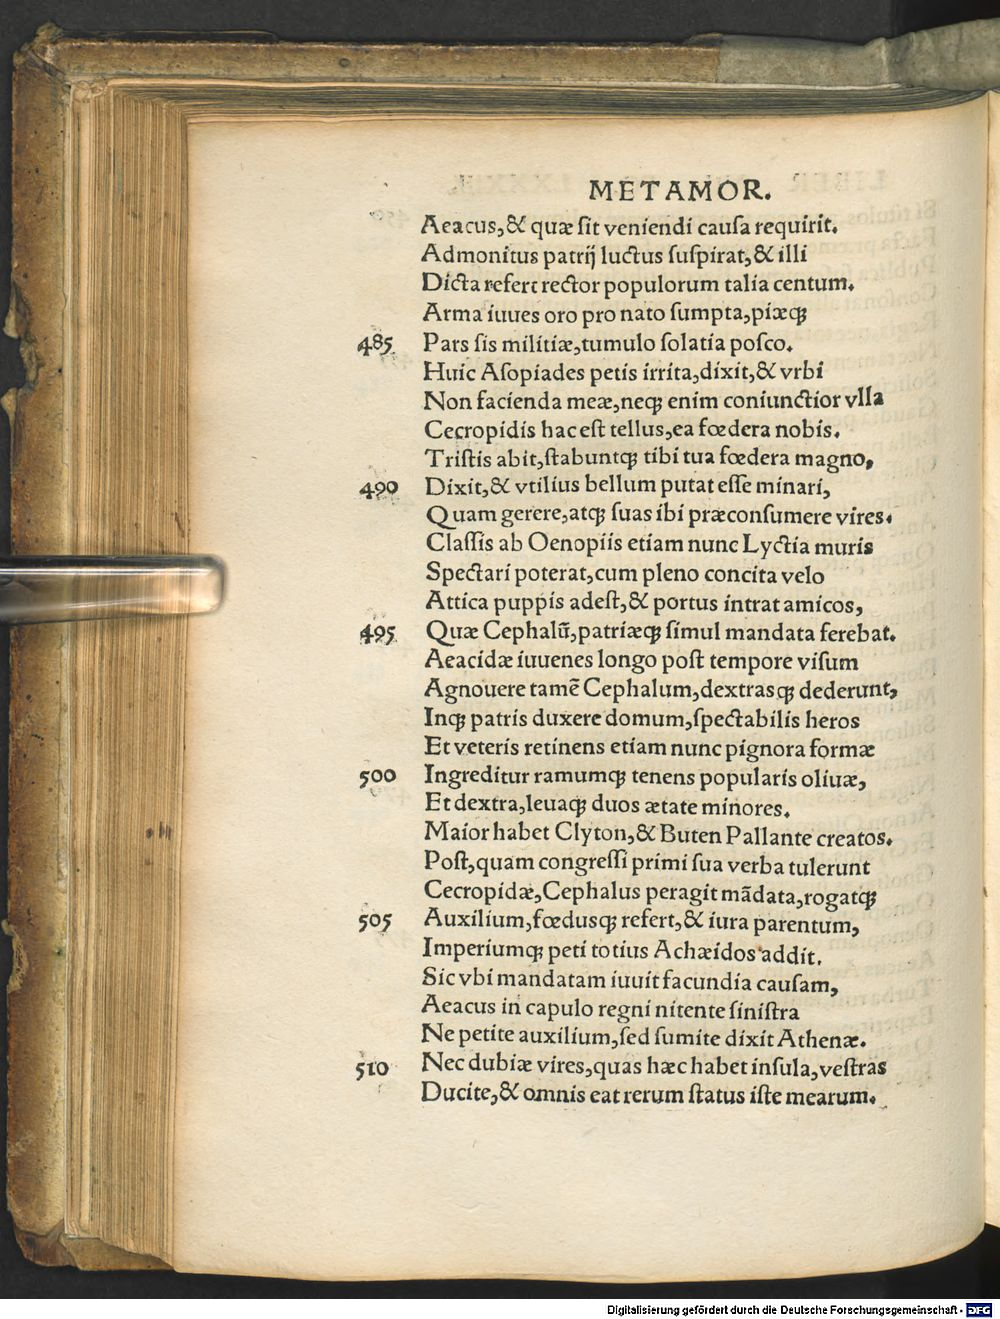 METAMOR.
Aeacus,& quæ ſit veniendi cauſa requirit.
Admonitus patrij luctus ſuſpirat,& illi
Dicta refert rector populorum talia centum.
Arma iuues oro pro nato ſumpta,piæq;
485 Pars ſis militiæ,tumulo ſolatia poſco.
Huic Aſopiades petis irrita,dixit,& vrbi
Non facienda meæ,neq; enim coniunctior vlla
Cecropidis hac eſt tellus,ea fœdera nobis.
Triſtis abit,ſtabuntq; tibi tua fœdera magno,
490 Dixit,& vtilius bellum putat eſſe minari,
Quam gerere,atq; ſuas ibi præconſumere vires.
Claſſis ab Oenopiis etiam nunc Lyctia muris
Spectari poterat,cum pleno concita velo
Attica puppis adeſt,& portus intrat amicos,
495 Quæ Cephalũ,patriæq; ſimul mandata ferebat.
Aeacidæ iuuenes longo poſt tempore viſum
Agnouere tamẽ Cephalum,dextrasq; dederunt,
Inq; patris duxere domum,ſpectabilis heros
Et veteris retinens etiam nunc pignora formæ
500 Ingreditur ramumq; tenens popularis oliuæ,
Et dextra,leuaq; duos ætate minores.
Maior habet Clyton,& Buten Pallante creatos.
Poſt,quam congreſſi primi ſua verba tulerunt
Cecropidæ,Cephalus peragit mãdata,rogatq;
505 Auxilium,fœdusq; refert,& iura parentum,
Imperiumq; peti totius Achæidos addit.
Sic vbi mandatam iuuit facundia cauſam,
Aeacus in capulo regni nitente ſiniſtra
Ne petite auxilium,ſed ſumite dixit Athenæ.
510 Nec dubiæ vires,quas hæc habet inſula,veſtras
Ducite,& omnis eat rerum ſtatus iſte mearum.
Digitalisierung gefördert durch die Deutsche Forschungsgemeinschaft - DFG